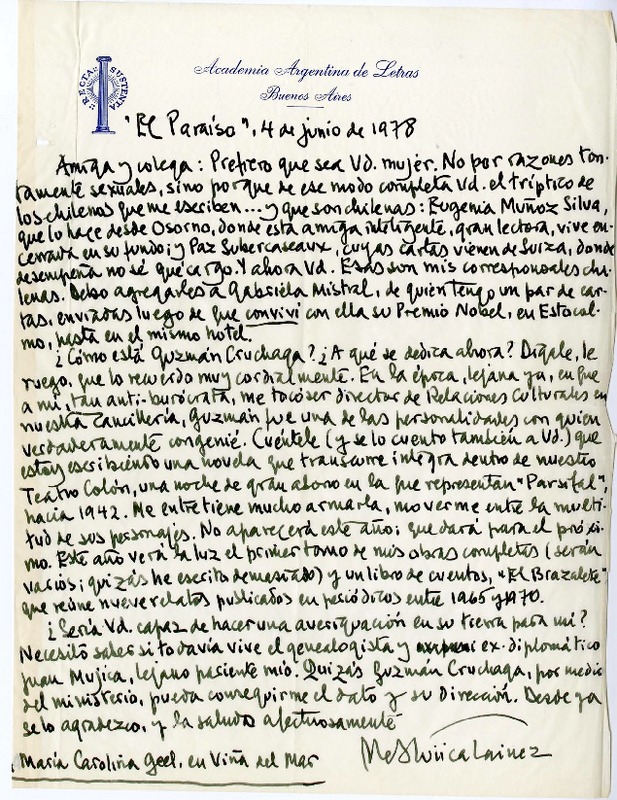 RECTA SUSTENTA
Academia Argentina de Letras
Buenos Aires
"El Paraíso", 4 de junio de 1978
Amiga y colega: Prefiero que sea Vd. mujer. No por razones
ramente sexuales, sino porque de ese modo completa Vd. el tríptico de
los chilenos que me escriben... y que son chilenas: Eugenia Muñoz Silva,
que lo hace desde Osorno, donde esta amiga inteligente, gran lectora, vive en-
cerrada en su fundo; y Paz Subercaseaux, cuyas cartas vienen de Suiza, donde
desempeña no sé qué cargo. Y ahora Vd. Esas son mis corresponsales chi-
lenas. Debo agregarles a Gabriela Mistral, de quien tengo un par de car-
tas, enviadas luego de que conviví con ella su Premio Nobel, en Estocol-
mo, hasta en el mismo hotel.
¿Cómo está Guzmán Cruchaga? ¿A qué se dedica ahora? Dígale, le
ruego, que lo recuerdo muy cordialmente. En la época, lejana ya, en que
a mí, tan anti-burócrata, me tocó ser director de Relaciones Culturales en
nuestra Cancillería, Guzmán fue una de las personalidades con quien
verdaderamente congenié. Cuéntele (y se lo cuento también a Vd.) que
estoy escribiendo una novela que transcurre íntegra dentro de nuestro
Teatro Colón, una noche de gran abono en la que representan "Parsifal",
hacia 1942. Me entretiene mucho armarla, moverme entre la multi-
tud de sus personajes. No aparecerá este año; quedará para el próxi-
mo. Este año verá la luz el primer tomo de mis obras completas (serán
varios; quizás he escrito demasiado) y un libro de cuentos, "El Brazalete"
que reúne nueve relatos publicados en periódicos entre 1965 y 1970.
¿Sería Vd. capaz de hacer una averiguación en su tierra para mí?
Necesito saber si todavía vive el genealogista y ex-diplomático
Juan Mujica, lejano pariente mío. Quizás Guzmán Cruchaga, por medio
del ministerio, pueda conseguirme el dato y su dirección. Desde ya
se lo agradezco, y la saludo afectuosamente
María Carolina Geel, en Viña del Mar
M. Mujica Lainez